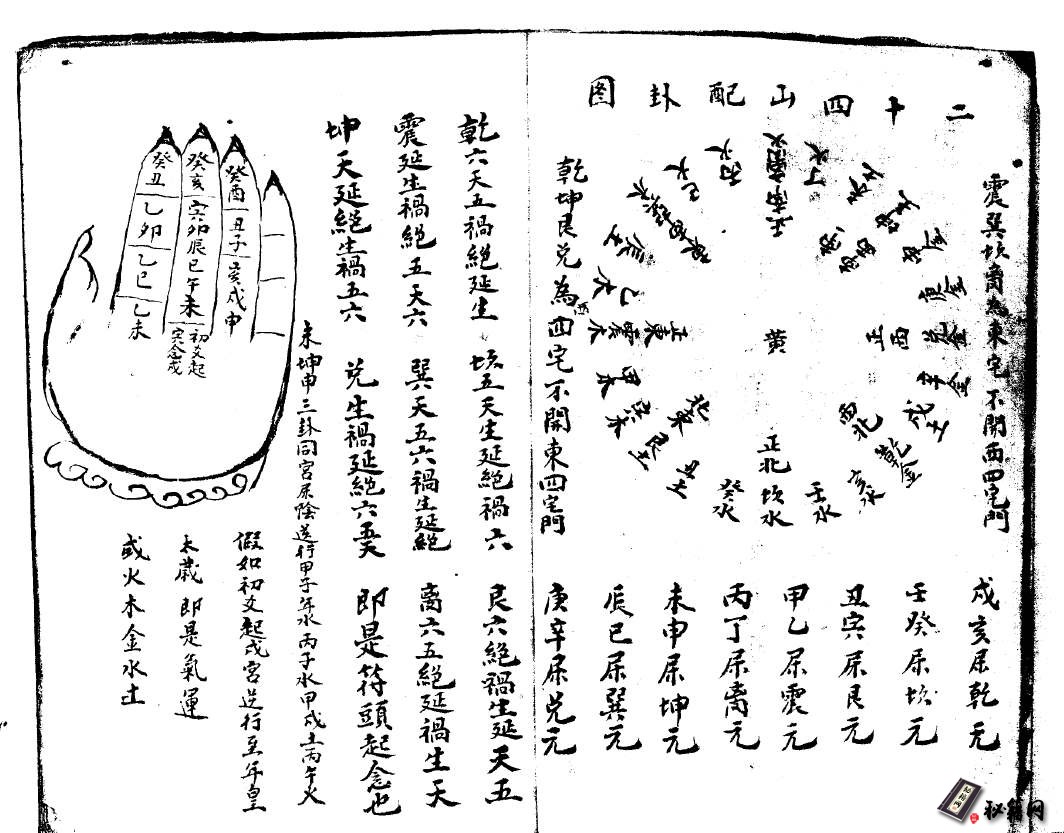 二十四山配卦图
震巽坎离为東宅不開西四宅門
乾坤艮兑為四宅不開東四宅門
正南
丁火
丙火
巳火
辰土
乙木
正東
震木
甲木
東北
艮土
丑土
癸水
正北
坎水
壬水
亥水
西北
乾金
戌土
辛金
正西
庚金
黄
戌亥屬乾元
壬癸屬坎元
丑寅屬艮元
甲乙屬震元
丙丁屬离元
未申屬坤元
辰巳屬巽元
庚辛屬兑元
乾六天五禍絕延生
坎五天生延絕禍六
艮六絕禍生延天五
震延生禍絕五天六
巽天五六禍生延絕
离六五絕延禍生天
坤天延絕生禍五六
兑生禍延絕六五天
即是符頭起念也
未坤申三卦同宫屬陰逆行甲子年水丙子水甲戌土丙午火
癸酉
丑子
亥戌申
癸亥
寅卯辰巳午未
初爻起
寅念戌
癸丑
乙卯
乙巳
乙未
假如初爻起戌宫逆行至年皇
太歲即是氣運
或火木金水土
秘籍网